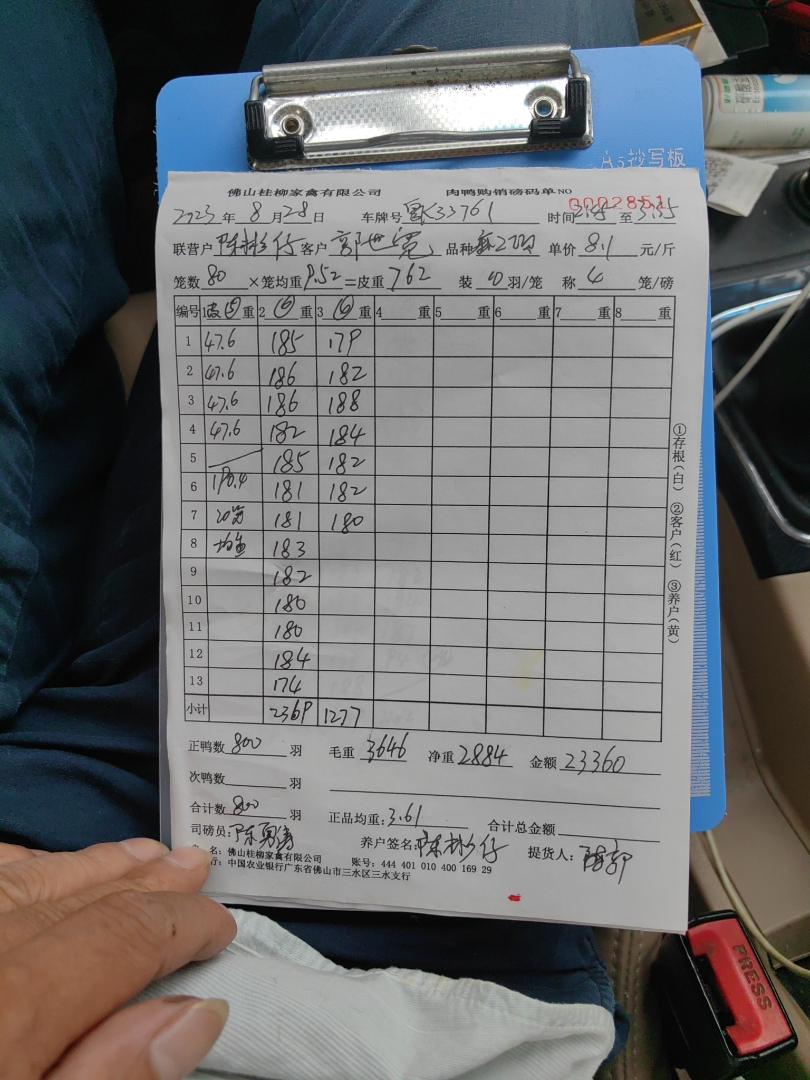 A5抄写板
佛山桂柳家禽有限公司 肉鸭购销磅码单 NO 0002851
2023年8月28日 车牌号 K33761 时间 至
联营户 陈彬仔 客户 郭世宽 品种 单价 8.1 元/斤
笼数 80 ×笼均重 9.52 =皮重 762 装 10 羽/笼 称 4 笼/磅
编号 1 皮 重 2 重 3 重 4 重 5 重 6 重 7 重 8 重
1 47.6 185 179
2 47.6 186 182
3 47.6 186 188
4 47.6 182 184
5 185 182
6 190.4 181 182
7 20笼 181 180
8 183
9 182
10 180
11 180
12 184
13 174
小计 2369 1277
①存根(白) ②客户(红) ③养户(黄)
正鸭数 800 羽 毛重 3646 净重 2884 金额 23360
次鸭数 羽
合计数 800 羽 正品均重: 3.61 合计总金额
司磅员: 陈勇涛 养户签名: 陈彬仔 提货人:
名: 佛山桂柳家禽有限公司 账号: 444 401 010 400 169 29
行: 中国农业银行广东省佛山市三水区三水支行
PRESS